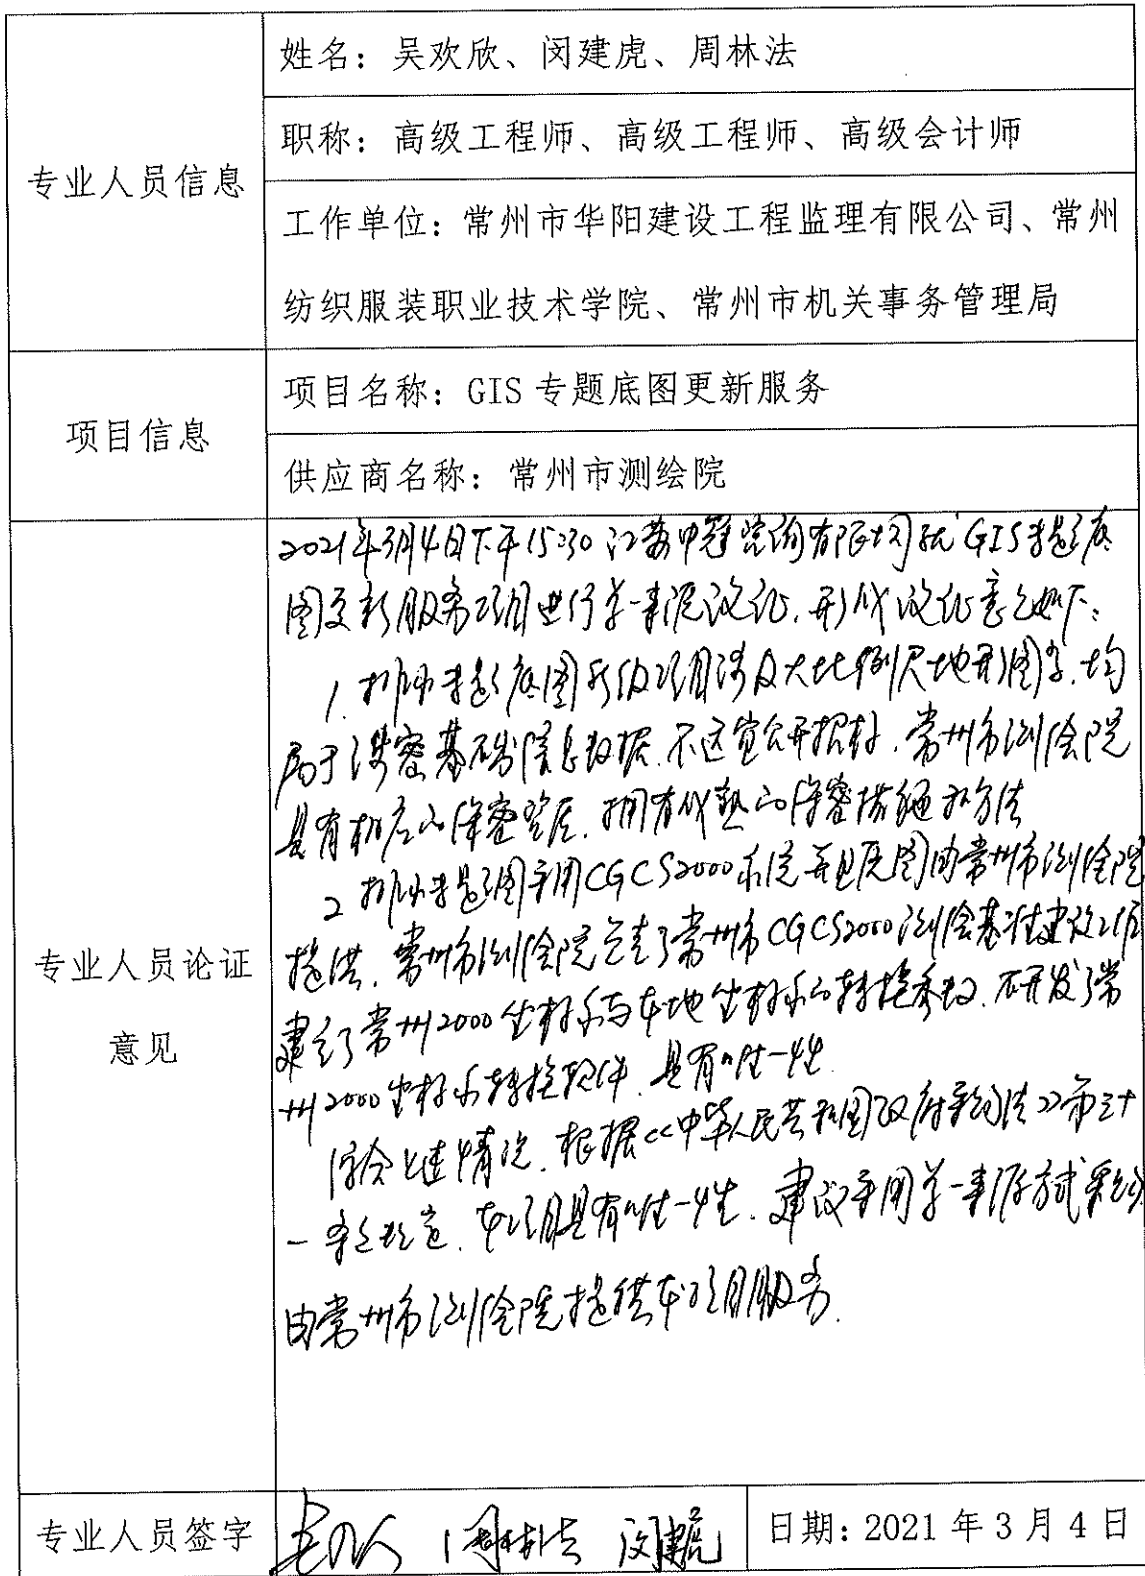 专业人员信息
姓名：吴欢欣、闵建虎、周林法
职称：高级工程师、高级工程师、高级会计师
工作单位：常州市华阳建设工程监理有限公司、常州
纺织服装职业技术学院、常州市机关事务管理局
项目信息
项目名称：GIS 专题底图更新服务
供应商名称：常州市测绘院
专业人员论证
意见
2021年3月4日下午15:30 江苏中冠咨询有限公司就GIS专题底
图更新服务项目进行单一来源论证，形成论证意见如下：
1. 排水专题底图升级项目涉及大比例尺地形图等，均
属于涉密基础信息数据，不适宜公开招标，常州市测绘院
具有相应的保密资质，拥有成熟的保密措施和方法
2 排水专题图采用CGCS2000系统并且底图由常州市测绘院
提供，常州市测绘院负责了常州市CGCS2000测绘基准建设工作
建立了常州2000坐标系与本地坐标系的转换参数，研发了常
州2000坐标系转换软件，具有唯一性
综合上述情况，根据《中华人民共和国政府采购法》第三十
一条之规定，本项目具有唯一性，建议采用单一来源方式采购
由常州市测绘院提供本项目服务.
专业人员签字
周林法 闵建虎
日期：2021 年 3 月 4 日